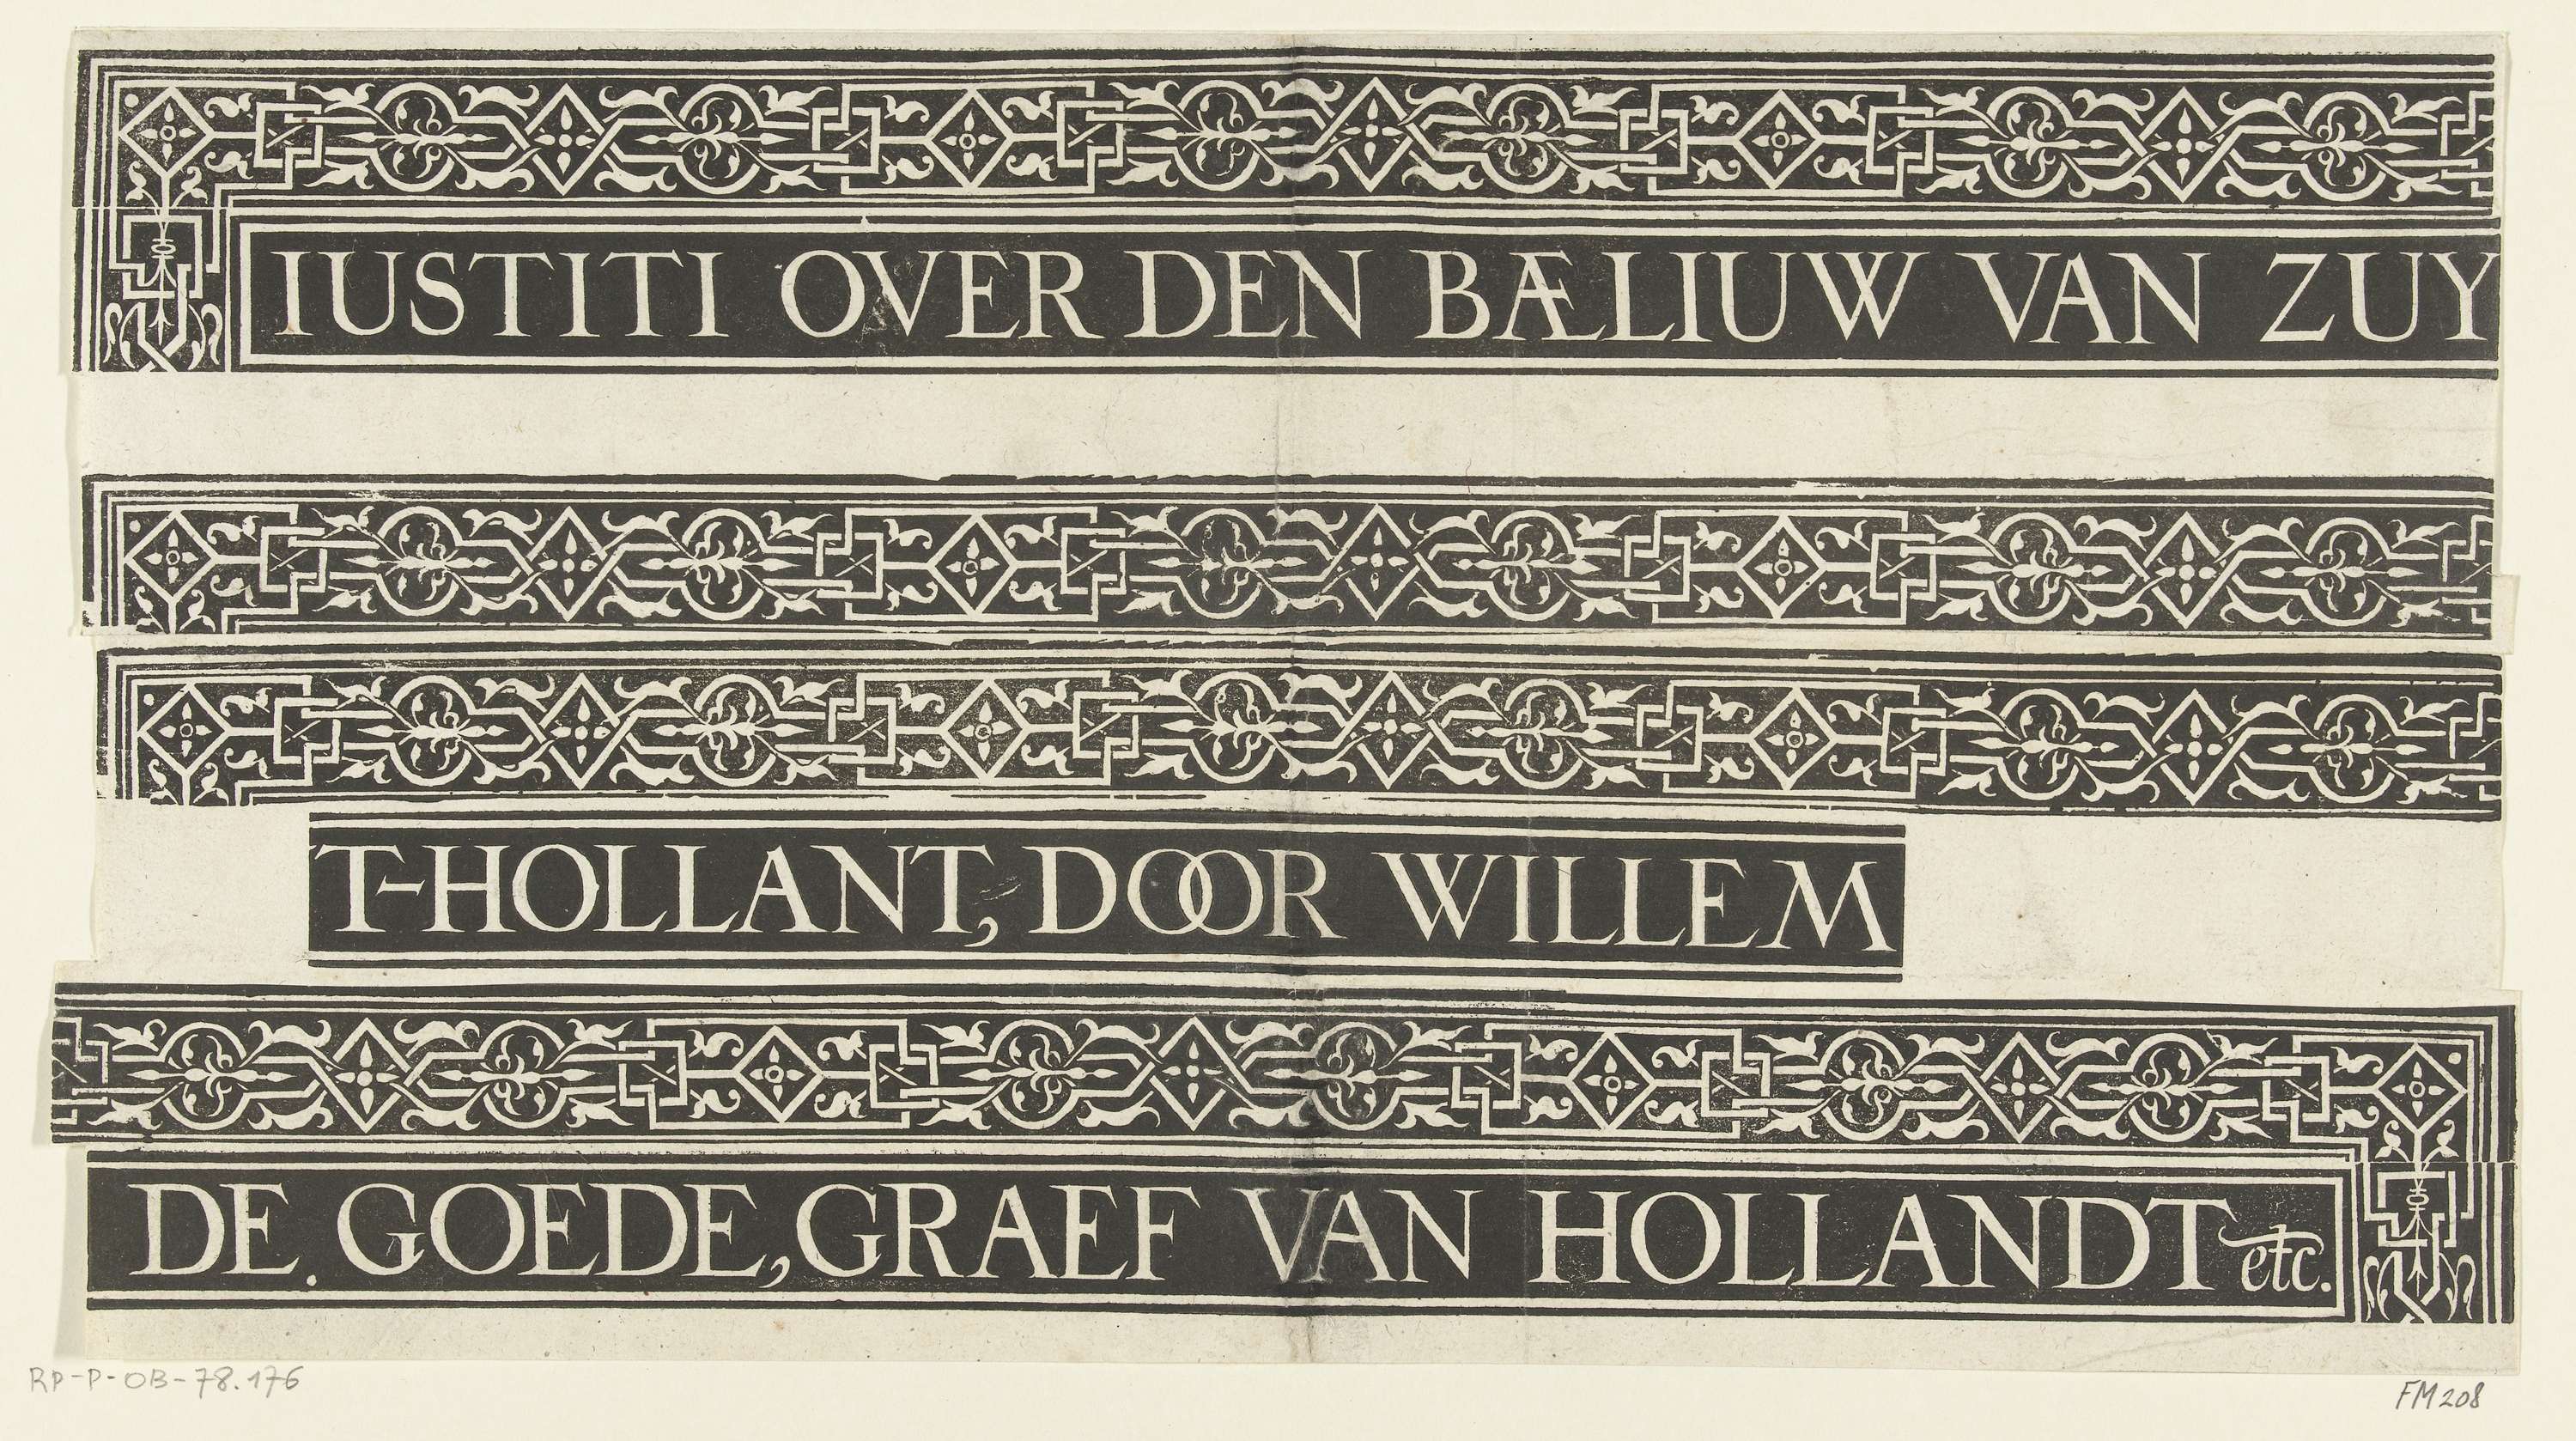 IUSTITI OVER DEN BÆLIUW VAN ZUY
T-HOLLANT, DOOR WILLEM
DE GOEDE, GRAEF VAN HOLLANDT etc.
RP-P-OB-78.176
FM208